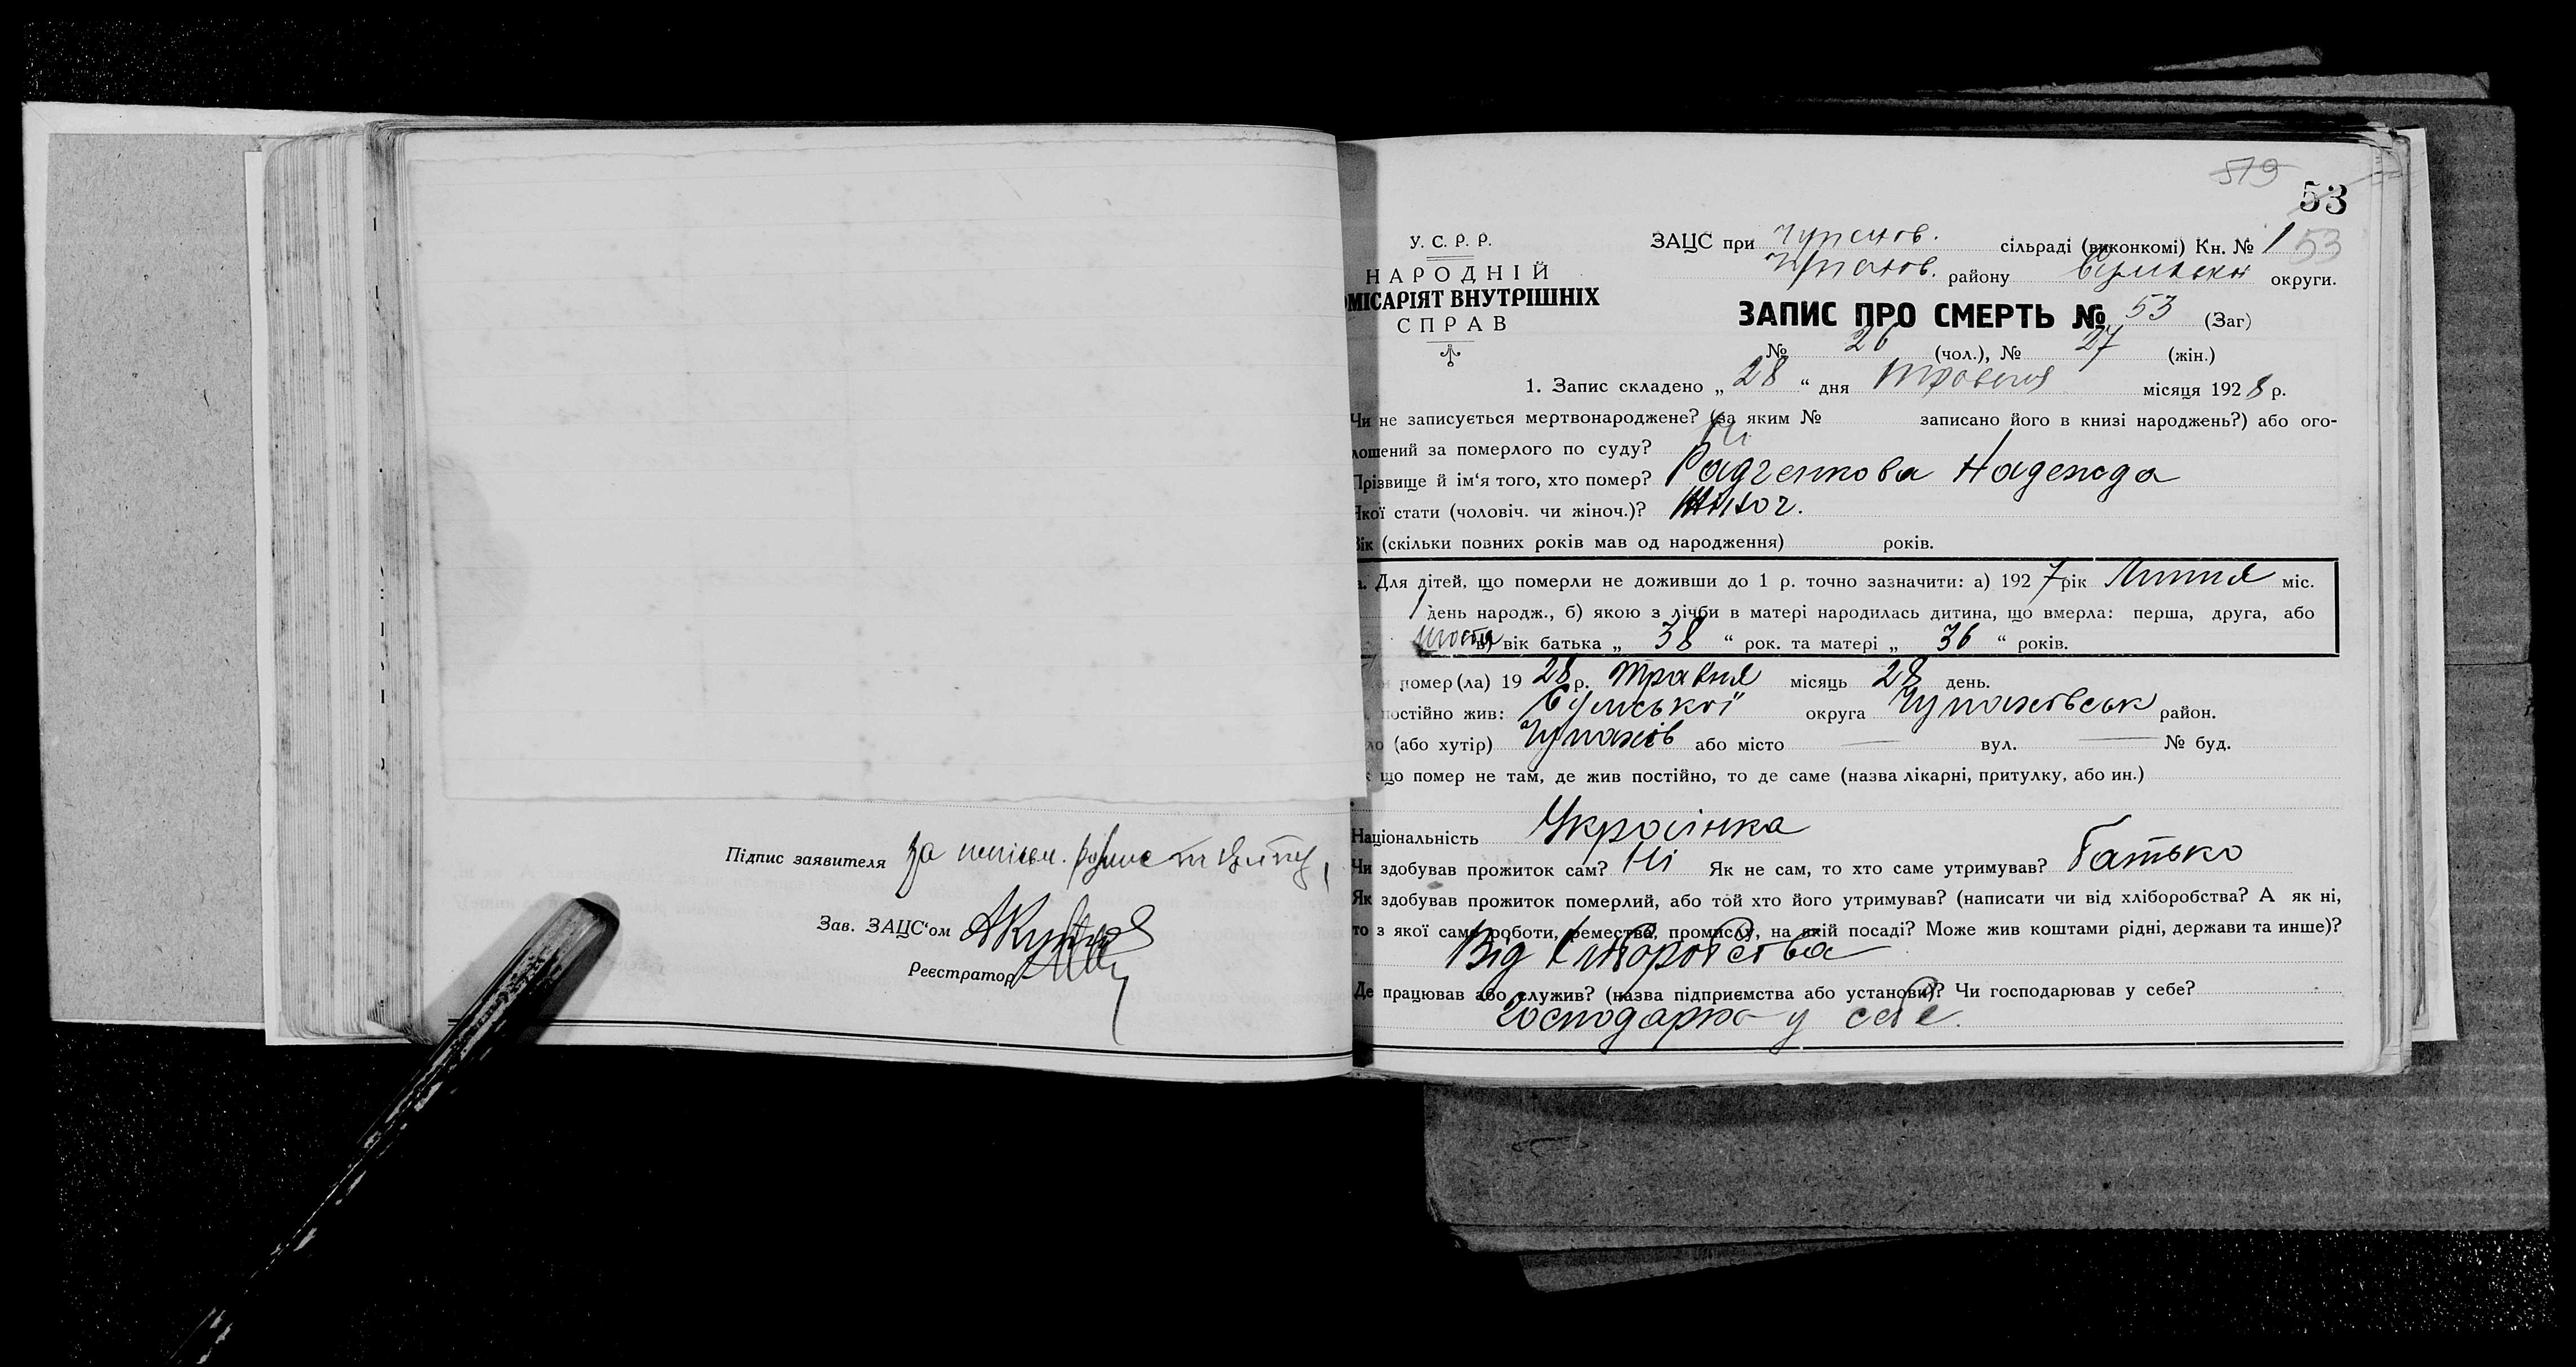 Підпис заявителя за неписьм.
Зав. ЗАЦС'ом
Реєстратор
519
53
У. С. Р. Р.
НАРОДНІЙ
ОМІСАРІЯТ ВНУТРІШНІХ
СПРАВ
ЗАЦС при сільраді (виконкомі) Кн. № 1 53
району округи.
ЗАПИС ПРО СМЕРТЬ № 53 (Заг)
№ 26 (чол.), № 27 (жін.)
1. Запис складено „ 28 “ дня травня місяця 1928 р.
Чи не записується мертвонароджене? (за яким № записано його в книзі народжень?) або ого-
лошений за померлого по суду? Ні
Прізвище й ім'я того, хто помер? Радченкова Надежда
Якої стати (чоловіч. чи жіноч.)? жіноч.
Вік (скільки повних років мав од народження) років.
а. Для дітей, що померли не доживши до 1 р. точно зазначити: а) 1927 рік Липня міс.
1 день народж., б) якою з лічби в матері народилась дитина, що вмерла: перша, друга, або
шоста в) вік батька „ 38 “ рок. та матері „ 36 “ років.
помер(ла) 1928 р. травня місяць 28 день.
постійно жив: Сумської округа район.
ло (або хутір) або місто — вул. — № буд.
що помер не там, де жив постійно, то де саме (назва лікарні, притулку, або ин.)
Національність Українка
Чи здобував прожиток сам? Ні Як не сам, то хто саме утримував? Батько
Як здобував прожиток померлий, або той хто його утримував? (написати чи від хліборобства? А як ні,
то з якої саме роботи, ремества, промислу, на якій посаді? Може жив коштами рідні, держави та инше)?
Від хліборобства
Де працював або служив? (назва підприємства або установи)? Чи господарював у себе?
Господарка у себе.